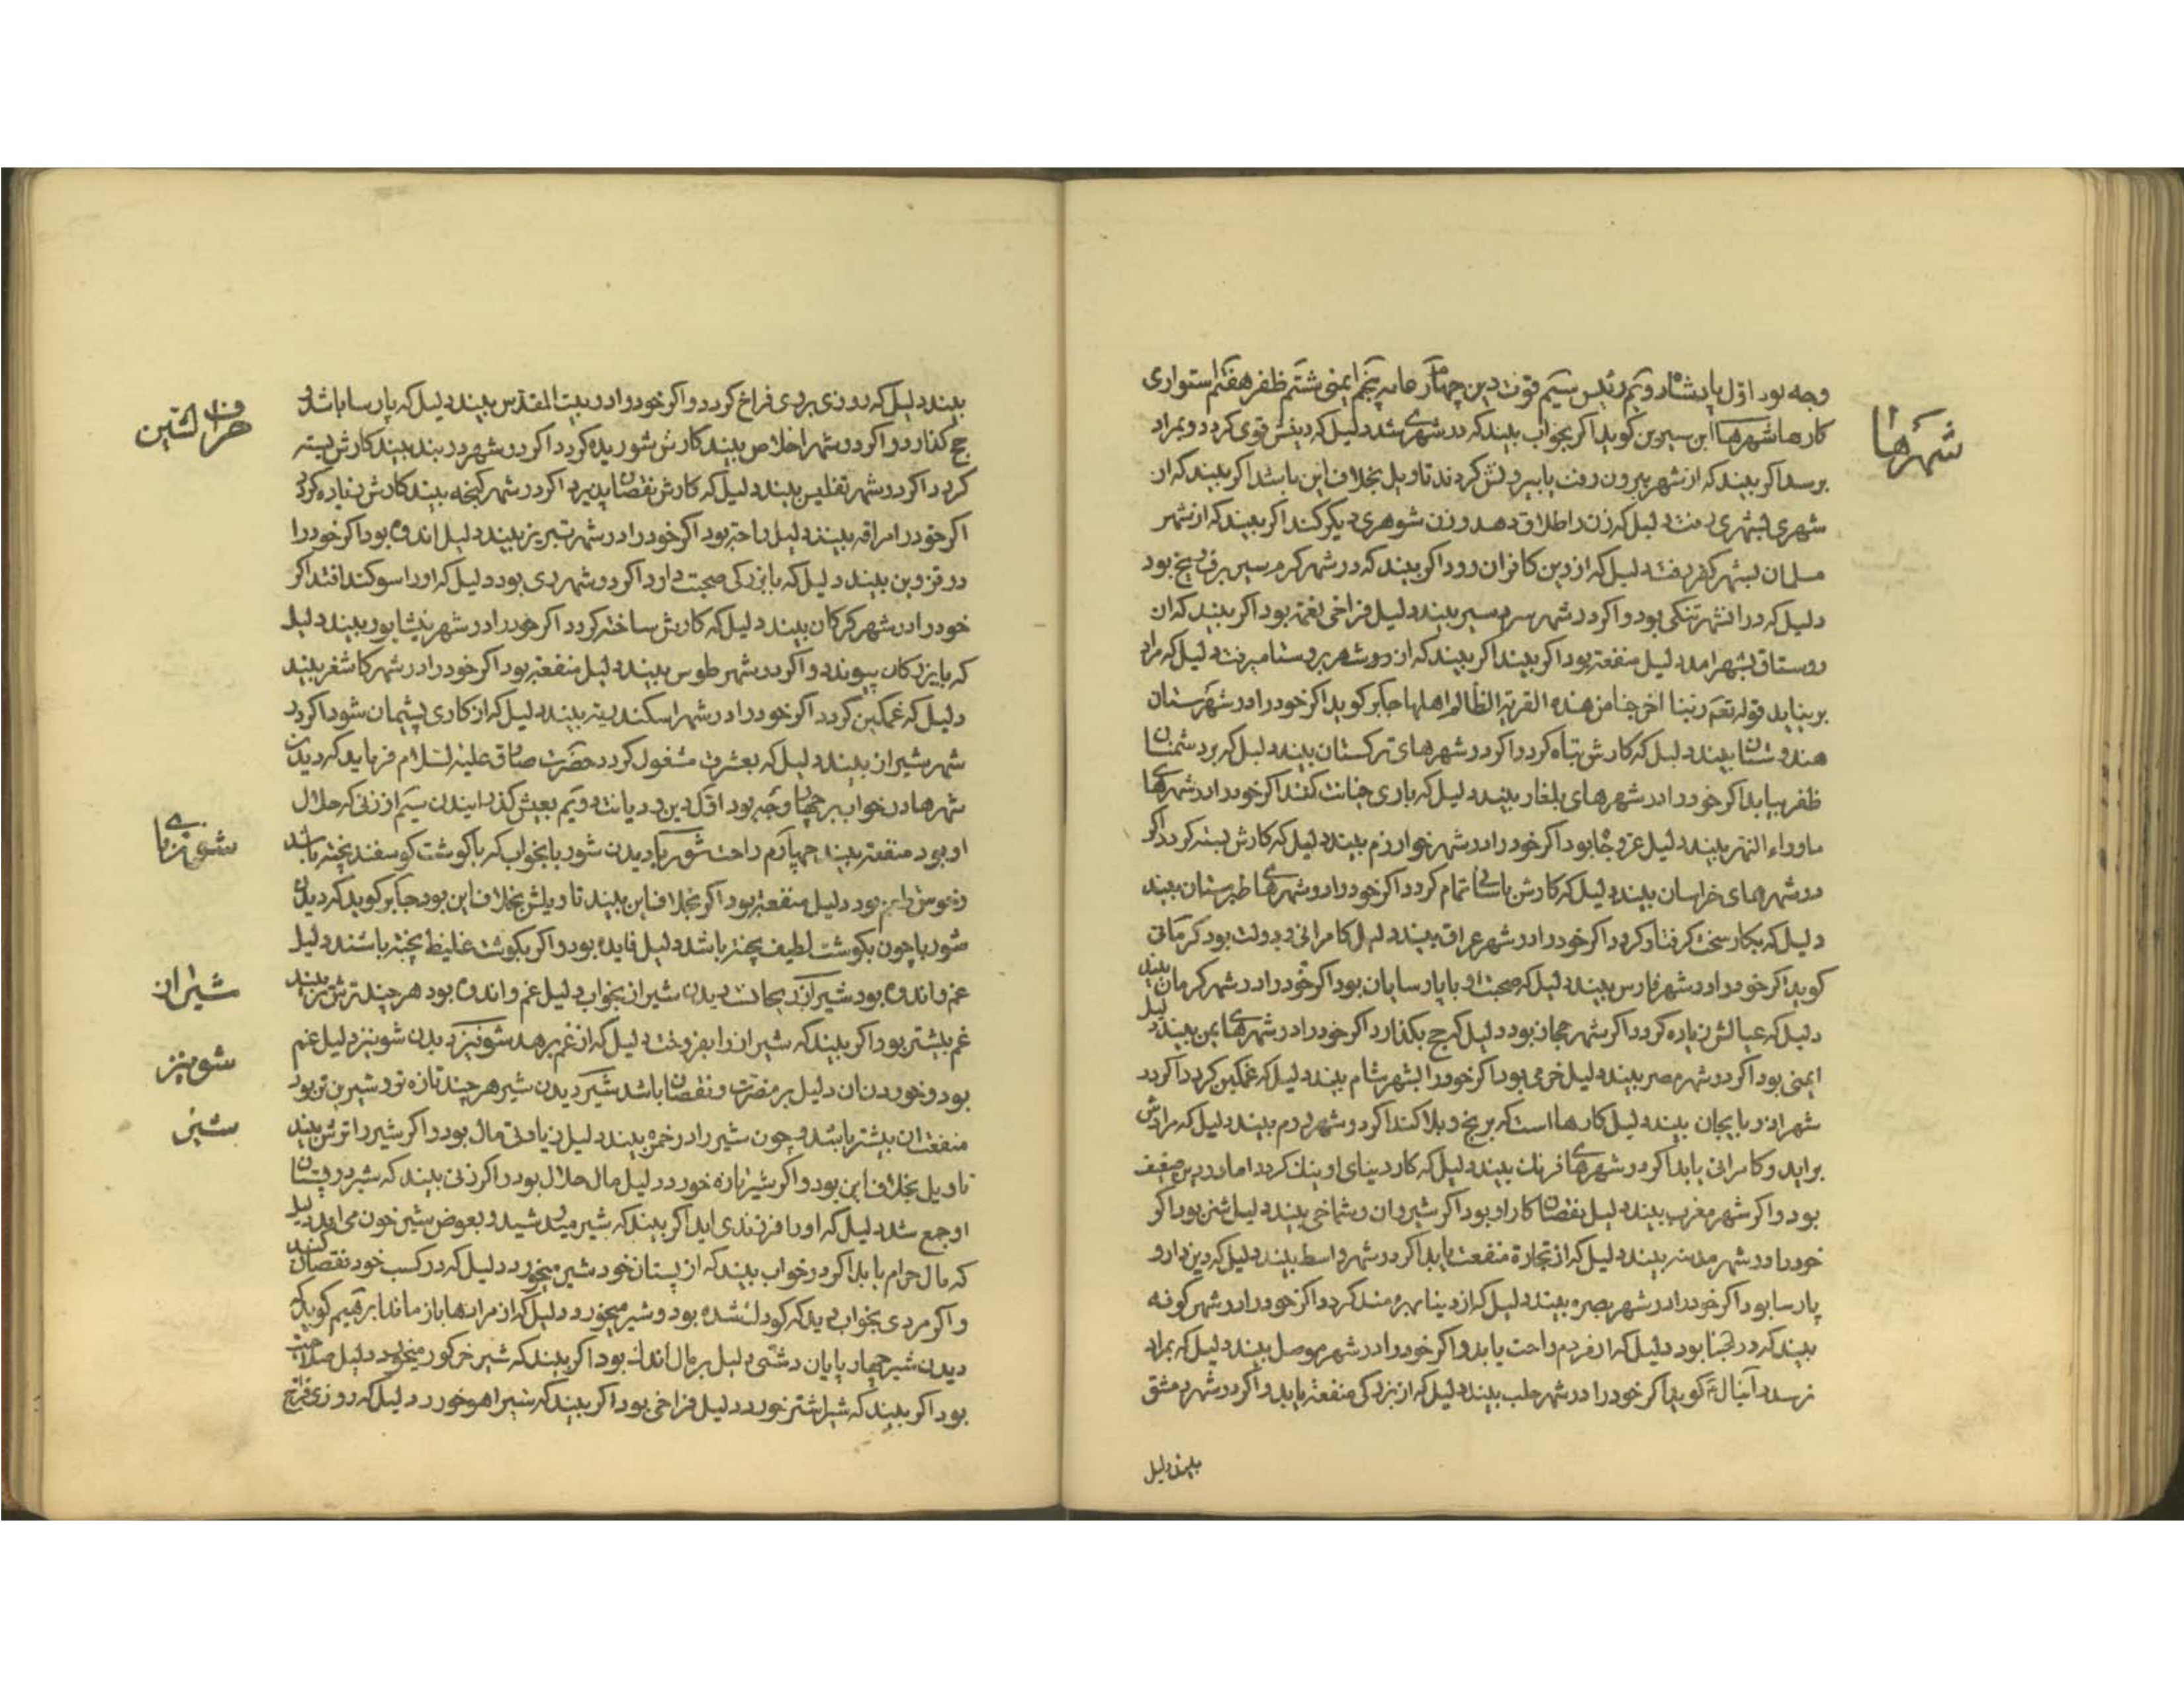 شهرها
وجه بود اوّل پادشاه دویّم رئیس سیّم قوّت دین چهارم خانه پنجم ایمنی ششم ظفر هفتم استواری
کارها شهرها ابن سیرین کوید اکر بخواب بیند که در شهری شد دلیل که دینش قوی کردد و بمراد
برسد اکر بیند که از شهر بیرون رفت یا بیرونش کردند تاویل بخلاف این باشد اکر بیند که از
شهری بشهری رفت دلیل که زن را طلاق دهد و زن شوهری دیکر کند اکر بیند که از شهر
مسلمانان بشهر کفر رفت دلیل که از دین کافران رود اکر بیند که در شهر کرم سیر برف و یخ بود
دلیل که در انشهر تنکی بود و اکر در شهر سرد سیر بیند دلیل فراخی نعمة بود اکر بیند که از
روستاق بشهر امد دلیل منفعة بود اکر بیند اکر بیند که از در شهر بروستا میرفت دلیل که مراد
بر نیابد قوله تعم ربّنا اخرجنا من هذه القریة الظالم اهلها جابر کوید اکر خود را در شهرستان
هندوستان بیند دلیل که کارش تباه کردد اکر در شهرهای ترکستان بیند دلیل که بر دشمنان
ظفر بیابد اکر خود را در شهرهای بلغار بیند دلیل که با وی خیانت کنند اکر خود را در شهرهای
ماوراء النهر بیند دلیل عزّ و جاه بود اکر خود را در شهر خوارزم بیند دلیل که کارش بسته کردد اکر
در شهرهای خراسان بیند دلیل که کارش باسانی تمام کردد اکر خود را در شهرهای طبرستان بیند
دلیل که بکار سخت کرفتار کردد اکر خود را در شهر عراق بیند دلیل کامرانی و دولت بود کرمانی
کوید اکر خود را در شهر فارس بیند دلیل که صحبت او با پارسایان بود اکر خود را در شهر کرمان بیند
دلیل که عیالش زیاده کردد اکر شهر حجاز بود دلیل که حج بکذارد اکر خود را در شهرهای یمن بیند دلیل
ایمنی بود اکر در شهر مصر بیند دلیل خرمی بود اکر خود را بشهر شام بیند دلیل که غمکین کردد اکر در
شهر اذربایجان بیند دلیل کارها است که برنج و بلا کند اکر در شهر روم بیند دلیل که مرادش
براید و کامرانی یابد اکر در شهرهای افرنک بیند دلیل که کار دنیای او نیک کردد اما در دین ضعیف
بود و اکر شهر مغرب بیند دلیل نقصان کار او بود اکر شیروان و شماخی بیند دلیل بود اکر
خود را در شهر مدینه بیند دلیل که از تجارة منفعت یابد اکر در شهر واسط بیند دلیل که دین دار و
پارسا بود اکر خود را در شهر بصره بیند دلیل که از دینا بهره مند کردد اکر خود را در شهر کوفه
بیند که در انجا بود دلیل که از مردم راحت یابد و اکر خود را در شهر موصل بیند دلیل که بمراد
نرسد دانیال کوید اکر خود را در شهر حلب بیند دلیل که از بزرکی منفعة یابد و اکر در شهر دمشق
بیند دلیل
بیند دلیل که روزی بر وی فراخ کردد و اکر خود را در بیت المقدّس بیند دلیل که پارسا باشد و
حج کذارد و اکر در شهر اخلاص بیند کارش شوریده کردد اکر در شهر دربند بیند کارش بسته
کردد اکر در شهر تفلیس بیند دلیل که کارش نقصان پذیرد اکر در شهر کنجه بیند کارش زیاده کردد
اکر خود را مراقه بیند دلیل راحة بود اکر خود را در شهر تبریز بیند دلیل اندوه بود اکر خود را
در قزوین بیند دلیل که با بزرکی صحبت دارد اکر در شهر ری بود دلیل که او را سوکند افتد اکر
خود را در شهر کرکان بیند دلیل که کارش ساخته کردد اکر خود را در شهر نیشابور بیند دلیل
که با بزرکان پیوندد و اکر در شهر طوس بیند دلیل منفعة بود اکر خود را در شهر کاشغر بیند
دلیل که غمکین کردد اکر خود را در شهر اسکندریة بیند دلیل که از کاری پشیمان شود اکر در
شهر شیراز بیند دلیل که بعشرت مشغول کردد حضرت صادق علیه السّلام فرماید که دیدن
شهرها در خواب بر چهار وجه بود اوّل دین و دیانت دویّم بعیش کذرانیدن سیّم از زنی که حلال
او بود منفعة بیند چهارم راحت شوربا دیدن شوربا بخواب که با کوشت کوسفند پخته باشد
و خوش طعم بود دلیل منفعة بود اکر بخلاف این بیند تاویلش بخلاف این بود جابر کوید که دیدن
شوربا چون بکوشت لطیف پخته باشد دلیل فایده بود و اکر بکوشت غلیظ پخته باشند دلیل
غم و اندوه بود شیراز دیدن شیراز بخواب دلیل غم و اندوه بود هر چند ترش تر بیند
غم بیشتر بود اکر بیند که شیراز را بفروخت دلیل که از غم برهد شونیز دیدن شونیز دلیل غم
بود و خوردن ان دلیل بر مضرّت و نقصان باشد شیر دیدن شیر هر چند تازه تر و شیرین تر بود
منفعت ان بیشتر باشد و چون شیر را در خمره بیند دلیل زیادتی مال بود و اکر شیر را ترش بیند
تاویل بخلاف این بود و اکر شیر تازه خورد دلیل مال حلال بود و اکر زنی بیند که شیر در پستان
او جمع شد دلیل که او را فرزندی اید اکر بیند که شیر میدوشید و بعوض شیر خون می امد دلیل
که مال حرام یابد اکر در خواب بیند که از پستان خود شیر میخورد دلیل که در کسب خود نقصان کند
و اکر مردی بخواب دید که کودک شده بود و شیر میخورد دلیل که از مرادها باز ماند ابرهیم کوید که
دیدن شیر چهار پایان دشتی دلیل بر مال اندک بود اکر بیند که شیر خر کور میخورد دلیل صلاحیت
بود اکر بیند که شیر اشتر خورد دلیل فراخی بود اکر بیند که شیر اهو خورد دلیل که روزی فراخ
شوربای
شیراز
شونیز
شیر